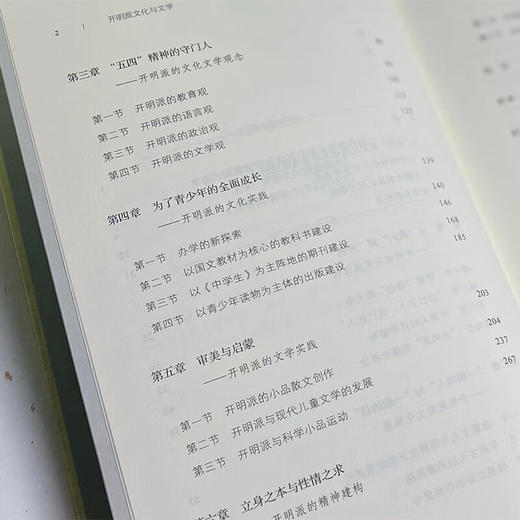 2 | 开明派文化与文学
第三章 “五四”精神的守门人
——开明派的文化文学观念
第一节 开明派的教育观
第二节 开明派的语言观
第三节 开明派的政治观
第四节 开明派的文学观 125
第四章 为了青少年的全面成长 139
——开明派的文化实践
第一节 办学的新探索 140
第二节 以国文教材为核心的教科书建设 146
第三节 以《中学生》为主阵地的期刊建设 168
第四节 以青少年读物为主体的出版建设 185
第五章 审美与启蒙 203
——开明派的文学实践
第一节 开明派的小品散文创作 204
第二节 开明派与现代儿童文学的发展 237
第三节 开明派与科学小品运动 267
第六章 立身之本与性情之求
——开明派的精神建构